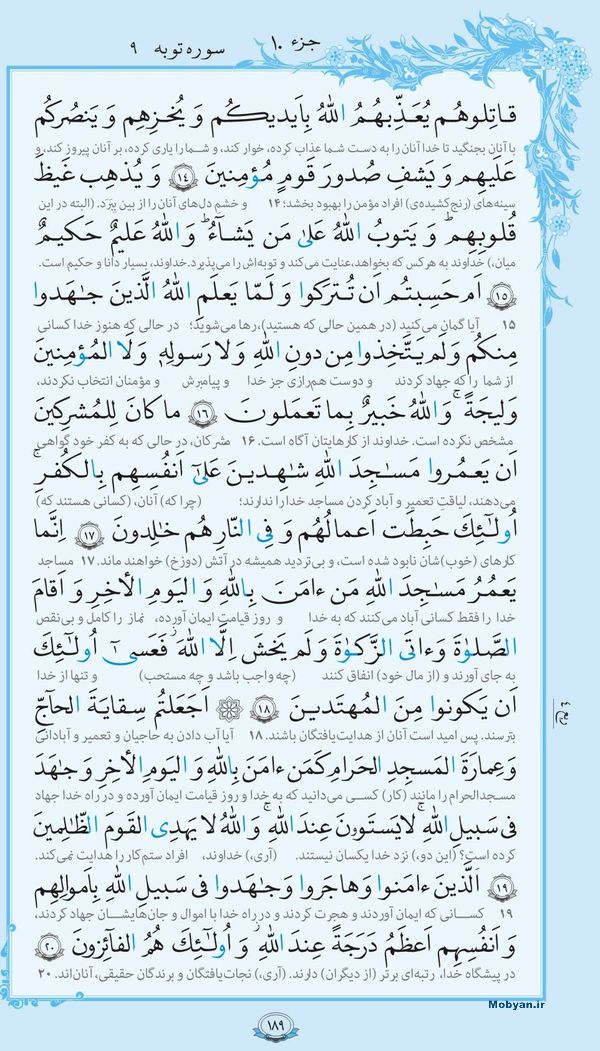 جزء ۱۰
سوره توبه ۹
قاتِلوهُم يُعَذِّبهُمُ اللهُ بِاَيديكُم وَ يُخزِهِم وَ يَنصُركُم
با آنان بجنگید تا خدا آنان را به دست شما عذاب کرده، خوار کند، و شما را یاری کرده، بر آنان پیروز کند، و
عَلَيهِم وَ يَشفِ صُدورَ قَومٍ مُؤمِنينَ ﴿١٤﴾ وَ يُذهِب غَيظَ
سینه‌های (رنج‌کشیده‌ی) افراد مؤمن را بهبود بخشد؛ ۱۴ و خشم دل‌های آنان را از بین ببَرَد. (البته در این
قُلوبِهِم ۗ وَ يَتوبُ اللهُ عَلىٰ مَن يَشاءُ ۗ وَ اللهُ عَليمٌ حَكيمٌ
میان،) خداوند به هر کس که بخواهد، عنایت می‌کند و توبه‌اش را می‌پذیرد. خداوند، بسیار دانا و حکیم است.
﴿١٥﴾ اَم حَسِبتُم اَن تُترَكوا وَ لَمّا يَعلَمِ اللهُ الَّذينَ جٰهَدوا
۱۵ آیا گمان می‌کنید (در همین حالی که هستید)، رها می‌شوید؛ در حالی که هنوز خدا کسانی
مِنكُم وَ لَم يَتَّخِذوا مِن دونِ اللهِ وَ لا رَسولِهٖ وَ لَا المُؤمِنينَ
از شما را که جهاد کردند و دوست هم‌رازی جز خدا و پیامبرش و مؤمنان انتخاب نکردند،
وَليجَةً ۚ وَ اللهُ خَبيرٌ بِما تَعمَلونَ ﴿١٦﴾ ما كانَ لِلمُشرِكينَ
مشخص نکرده است. خداوند از کارهایتان آگاه است. ۱۶ مشرکان، در حالی که به کفر خود گواهی
اَن يَعمُروا مَسٰجِدَ اللهِ شٰهِدينَ عَلىٰ اَنفُسِهِم بِالكُفرِ ۚ
می‌دهند، لیاقتِ تعمیر و آباد کردن مساجد خدا را ندارند؛ (چرا که) آنان، (کسانی هستند که)
اُولٰئِكَ حَبِطَت اَعمالُهُم وَ فِى النّارِ هُم خالِدونَ ﴿١٧﴾ اِنَّما
کارهای (خوب)شان نابود شده است، و بی‌تردید همیشه در آتش (دوزخ) خواهند ماند. ۱۷ مساجد
يَعمُرُ مَسٰجِدَ اللهِ مَن ءامَنَ بِاللهِ وَ اليَومِ الأخِرِ وَ اَقامَ
خدا را فقط کسانی آباد می‌کنند که به خدا و روز قیامت ایمان آورده، نماز را کامل و بی‌نقص
الصَّلوٰةَ وَ ءاتَى الزَّكوٰةَ وَ لَم يَخشَ اِلَّا اللهَ ۖ فَعَسىٰ اُولٰئِكَ
به جای آورند و (از مال خود) انفاق کنند (چه واجب باشد و چه مستحب) و تنها از خدا
اَن يَكونوا مِنَ المُهتَدينَ ﴿١٨﴾ اَجَعَلتُم سِقايَةَ الحاجِّ
بترسند. پس امید است آنان از هدایت‌یافتگان باشند. ۱۸ آیا آب دادن به حاجیان و تعمیر و آبادانی
وَ عِمارَةَ المَسجِدِ الحَرامِ كَمَن ءامَنَ بِاللهِ وَ اليَومِ الأخِرِ وَ جٰهَدَ
مسجدالحرام را مانند (کار) کسی می‌دانید که به خدا و روز قیامت ایمان آورده و در راه خدا جهاد
فى سَبيلِ اللهِ ۚ لا يَستَوونَ عِندَ اللهِ ۗ وَ اللهُ لا يَهدِى القَومَ الظّٰلِمينَ
کرده است؟ (این دو،) نزد خدا یکسان نیستند. (آری،) خداوند، افراد ستم‌کار را هدایت نمی‌کند.
﴿١٩﴾ اَلَّذينَ ءامَنوا وَ هاجَروا وَ جٰهَدوا فى سَبيلِ اللهِ بِاَموالِهِم
۱۹ کسانی که ایمان آوردند و هجرت کردند و در راه خدا با اموال و جان‌هایشان جهاد کردند،
وَ اَنفُسِهِم اَعظَمُ دَرَجَةً عِندَ اللهِ ۚ وَ اُولٰئِكَ هُمُ الفائِزونَ ﴿٢٠﴾
در پیشگاه خدا، رتبه‌ای برتر (از دیگران) دارند. (آری،) نجات‌یافتگان و برندگان حقیقی، آنان‌اند. ۲۰
Mobyan.ir
۱۸۹